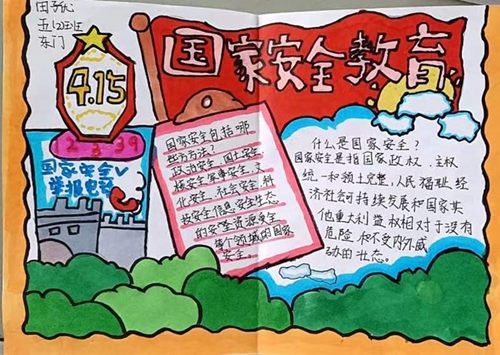 五(2)班
东门
4.15
国家安全教育
1 2 3 3 9
国家安全
举报电话
国家安全包括哪
些方方法?
政治安全、国土安全
军事安全、
化安全、社会安全、科
技安全、信息安全、生态
安全、资源安全
每个领域的国家
安全。
什么是国家安全?
国家安全是指国家政权、主权
统一和领土完整,人民福祉、经
济社会可持续发展和国家其
他重大利益权相对于没有
危险和不受内外威
胁的壮态。